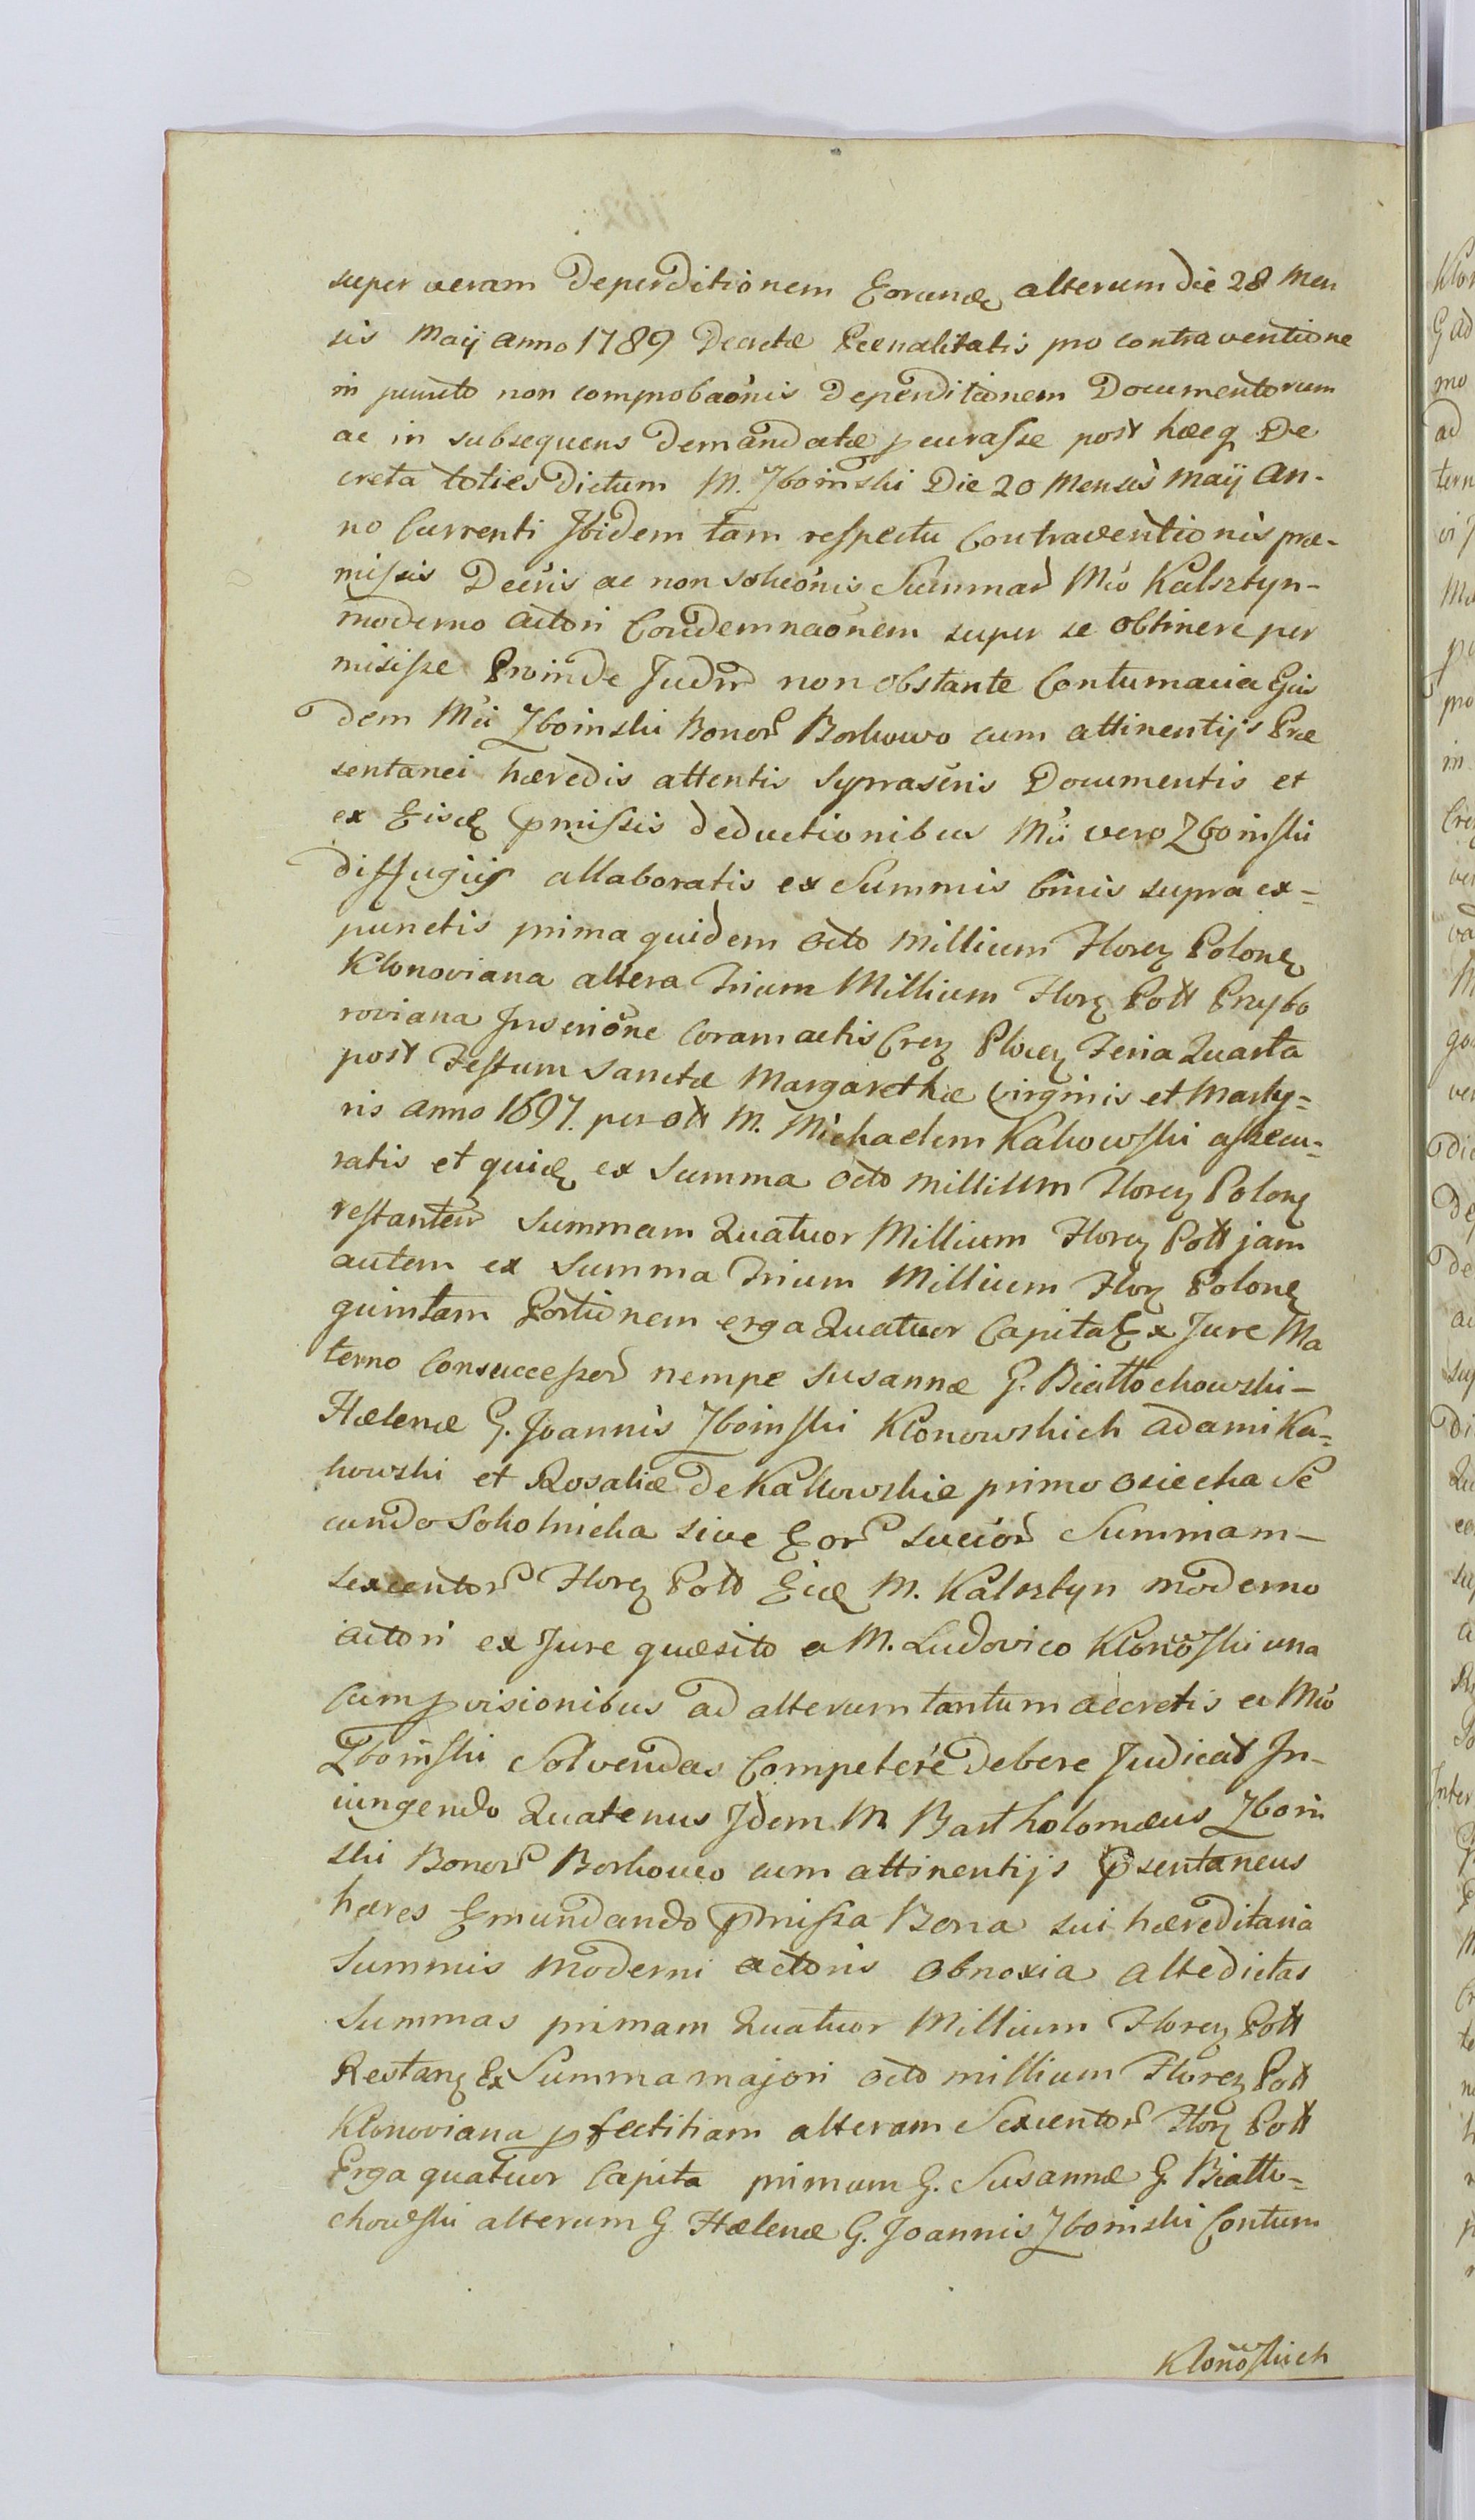 super veram Deperditionem Eorundꝫ alterum die 28 Men
sis Maij anno 1789 Decretæ Pœnalitatis pro contraventione
in puncto non comprobaõnis Deperditionem Documentorum
ac in subsequens Demandatæ ꝓcurasse post hæcq De
creta toties Dictum M. Zboinski Die 20 Mensis Maij An-
no Currenti Ibidem tam respectu Contraventionis præ-
missis Decñis ac non soluõnis Summar̃ Mco Kalsztyn-
moderno actori Condemnaõnem super se obtinere per
misisse Proinde Judm̃ non obstante Contumacia Ejus
dem Mci Zboinski Bonor̃ Borkowo cum attinentijs Præ
sentanei hæredis attentis Suprascñis Documentis et
ex Eisdꝫ p̃missis deductionibus Mci vero Zboinski
diffugijs allaboratis ex Summis binis supra ex=
punctis prima quidem octo millium Florꝫ Polonꝫ
Klonoviana altera Trium Millium Florꝫ Poll Przybo
roviana Inscriõne coram actis Crꝫ Plocꝫ Feria Quarta
post Festum Sanctæ Margarethæ Virginis et Marty=
ris anno 1697. per oll M. Michaelem Kakowski assecu=
ratis et quidꝫ ex Summa octo millium Florꝫ Polonꝫ
restanteũ Summam Quatuor Millium Florꝫ Poll jam
autem ex Summa Trium Millium Florꝫ Polonꝫ
quintam Portionem erga Quatuor Capita Ex Jure Ma
terno Consuccessor̃ nempe Susannæ G. Biallochowski-
Hælenæ G. Joannis Zboinski Klonowskich Adami Ka=
kowski et Rosaliæ De Kakowskie primo Osiecka Se
cundo Sokolnicka sive Eor̃ succor̃ Summam-
sexcentor̃ Florꝫ Poll Eidꝫ M. Kalsztyn moderno
actori ex Jure quæsito a M. Ludovico Klonoski una
cum ꝓvisionibus ad alterum tantum accretis a Mco
Zboinski Solvendas Competere Debere Judicat In-
iungendo Quatenus Idem M Bartholomæus Zboin
ski Bonor̃ Borkowo cum attinentijs p̃sentaneus
hæres Emundando p̃missa Bona sui hæreditaria
Summis Moderni actoris obnoxia altedictas
Summas primam Quatuor Millium Florꝫ Poll
Restanꝫ Ex Summa majori octo millium Florꝫ Poll
Klonoviana ꝓfectitiam alteram Sexcentor̃ Florꝫ Poll
Erga quatuor Capita primum G. Susannæ G. Biallo=
chowski alterum G Hælenæ G. Joannis Zboinski Contum
Klonoskich